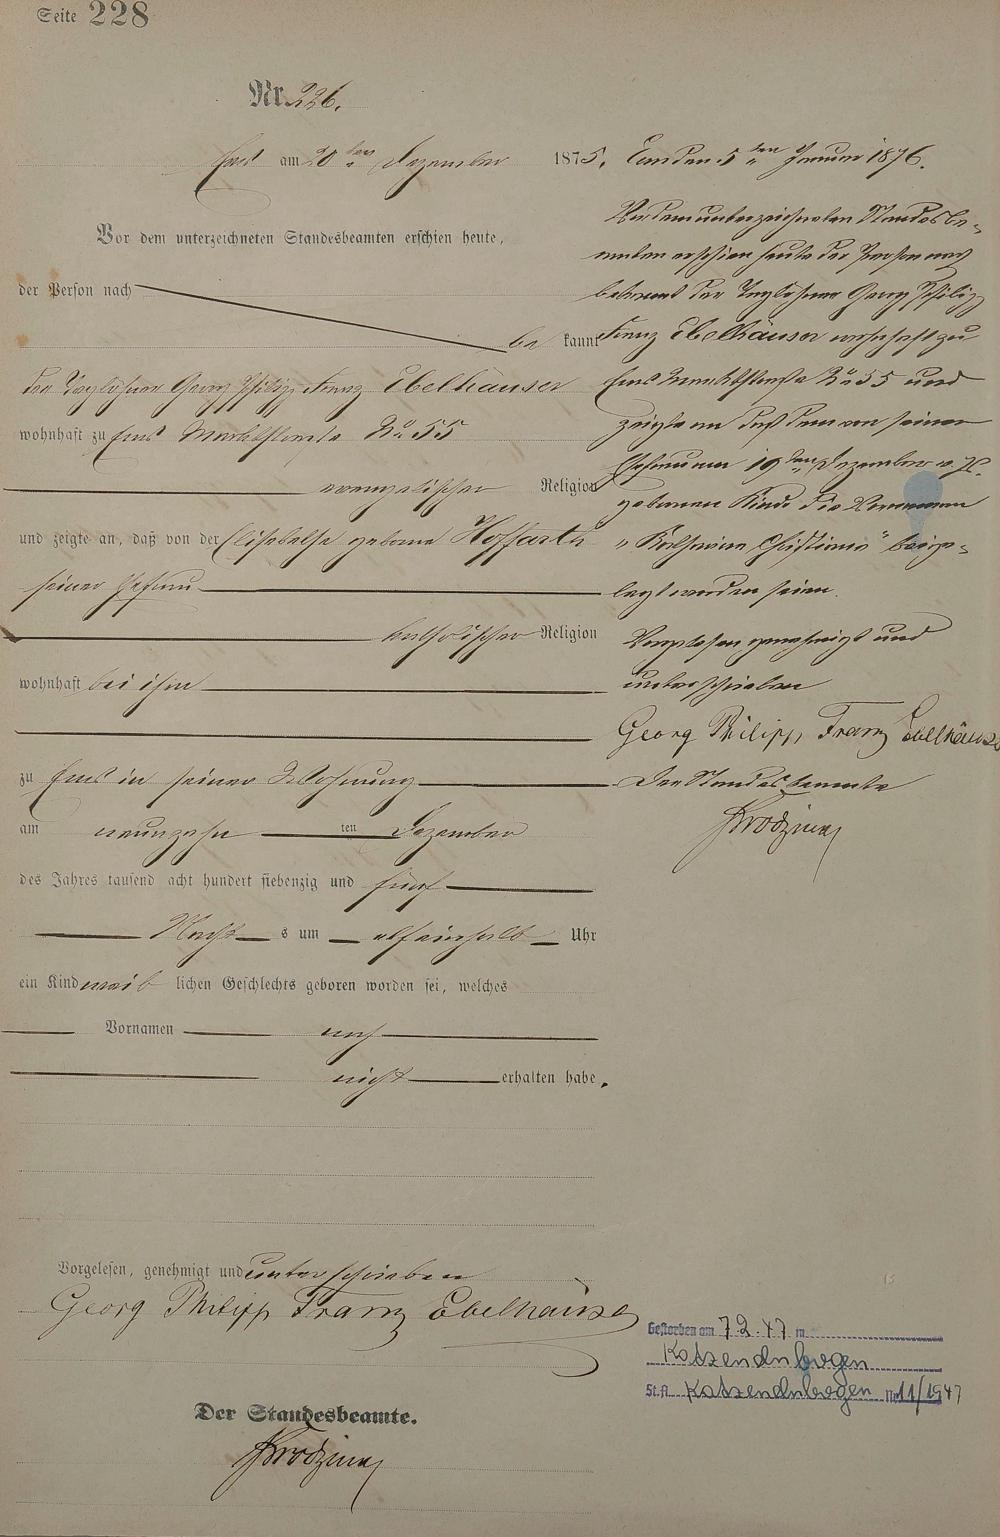 Seite 228
Nr. 226.
Ems am 20ten Dezember 1875.
Vor dem unterzeichneten Standesbeamten erschien heute,
der Person nach
be kannt
der Taglöhner Georg Philipp Franz Ebelhäuser
wohnhaft zu Ems Marktstraße No 55
evangelischer Religion
und zeigte an, daß von der Elisabethe geborne Hoffarth
seiner Ehefrau
katholischer Religion
wohnhaft bei ihm
zu Ems in seiner Wohnung
am neunzehn ten Dezember
des Jahres tausend acht hundert siebenzig und fünf
Nacht s um elfeinhalb Uhr
ein Kind weib lichen Geschlechts geboren worden sei, welches
Vornamen noch
nicht erhalten habe.
Vorgelesen, genehmigt und unterschrieben
Georg Philipp Franz Ebelhäuser
Der Standesbeamte.
Ems den 5ten Januar 1876.
Vor dem unterzeichneten Standesbe-
amten erschien heute der Person nach
bekannt der Taglöhner Georg Philipp
Franz Ebelhäuser wohnhaft zu
Ems Marktstraße No 55 und
zeigte an daß dem von seiner
Ehefrau am 19ten Dezember v. J.
geborenen Kinde die Vornamen
"Katharina Christiane" beige-
legt worden seien.
Vorgelesen genehmigt und
unterschrieben
Georg Philipp Franz Ebelhäuser
Der Standesbeamte
Gestorben am 7.2.47 in
Katzenelnbogen
St.A. Katzenelnbogen Nr. 11/1947